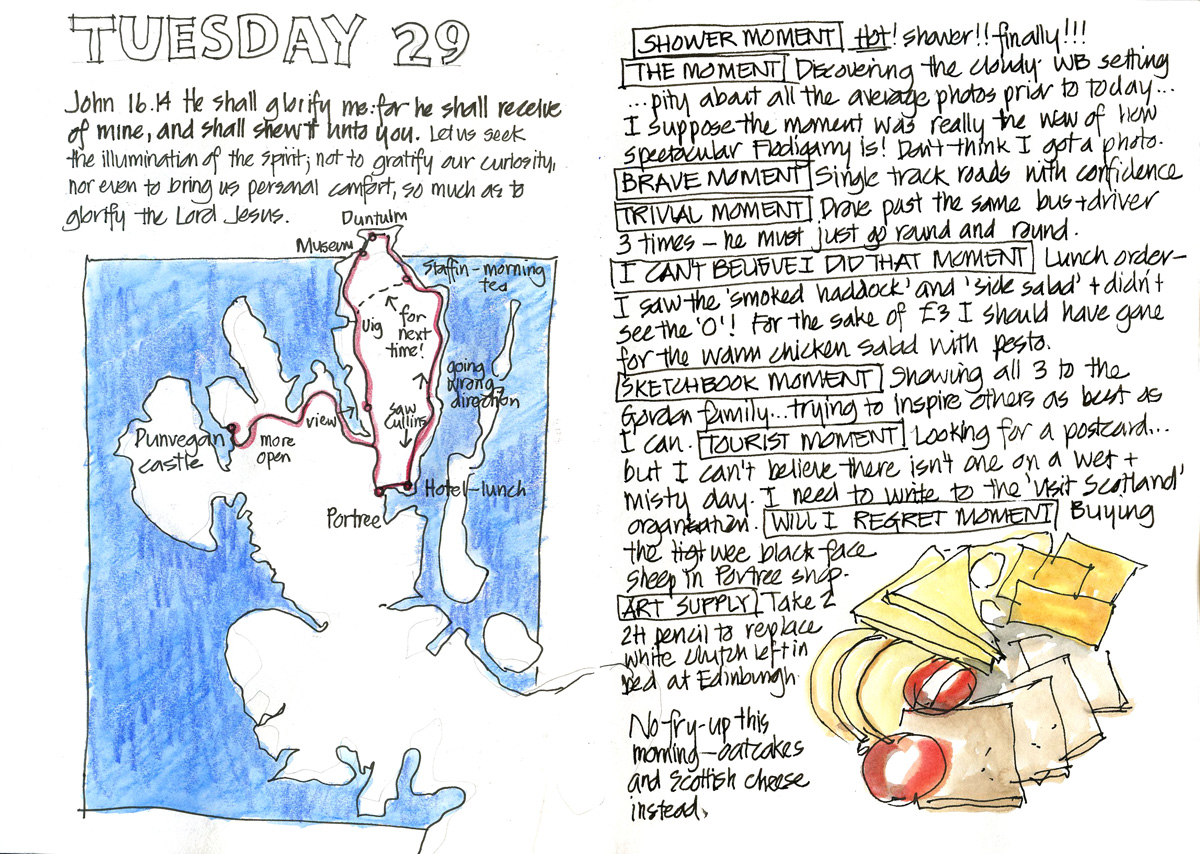 TUESDAY 29
John 16.14 He shall glorify me: for he shall receive
of mine, and shall shew it unto you. Let us seek
the illumination of the spirit; not to gratify our curiosity,
nor even to bring us personal comfort, so much as to
glorify the Lord Jesus.
Duntulm
Museum
Staffin - morning
tea
Uig
for
next
time!
going
wrong
direction
saw
Cullins
view
Dunvegan
castle
more
open
Hotel - lunch
Portree
SHOWER MOMENT Hot! shower!! finally!!!
THE MOMENT Discovering the cloudy WB setting
...pity about all the average photos prior to today...
I suppose the moment was really the view of how
spectacular Flodigarry is! Don't think I got a photo.
BRAVE MOMENT Single track roads with confidence
TRIVIAL MOMENT Drove past the same bus + driver
3 times - he must just go round and round.
I CAN'T BELIEVE I DID THAT MOMENT Lunch order -
I saw the 'smoked haddock' and 'side salad' + didn't
see the 'O'! For the sake of £3 I should have gone
for the warm chicken salad with pesto.
SKETCHBOOK MOMENT Showing all 3 to the
Gordon family... trying to inspire others as best as
I can. TOURIST MOMENT Looking for a postcard...
but I can't believe there isn't one on a wet +
misty day. I need to write to the 'Visit Scotland'
organisation. WILL I REGRET MOMENT Buying
the wee black face
sheep in Portree shop.
ART SUPPLY Take 2
2H pencil to replace
white clutch left in
bed at Edinburgh
No fry-up this
morning - oatcakes
and Scottish cheese
instead.